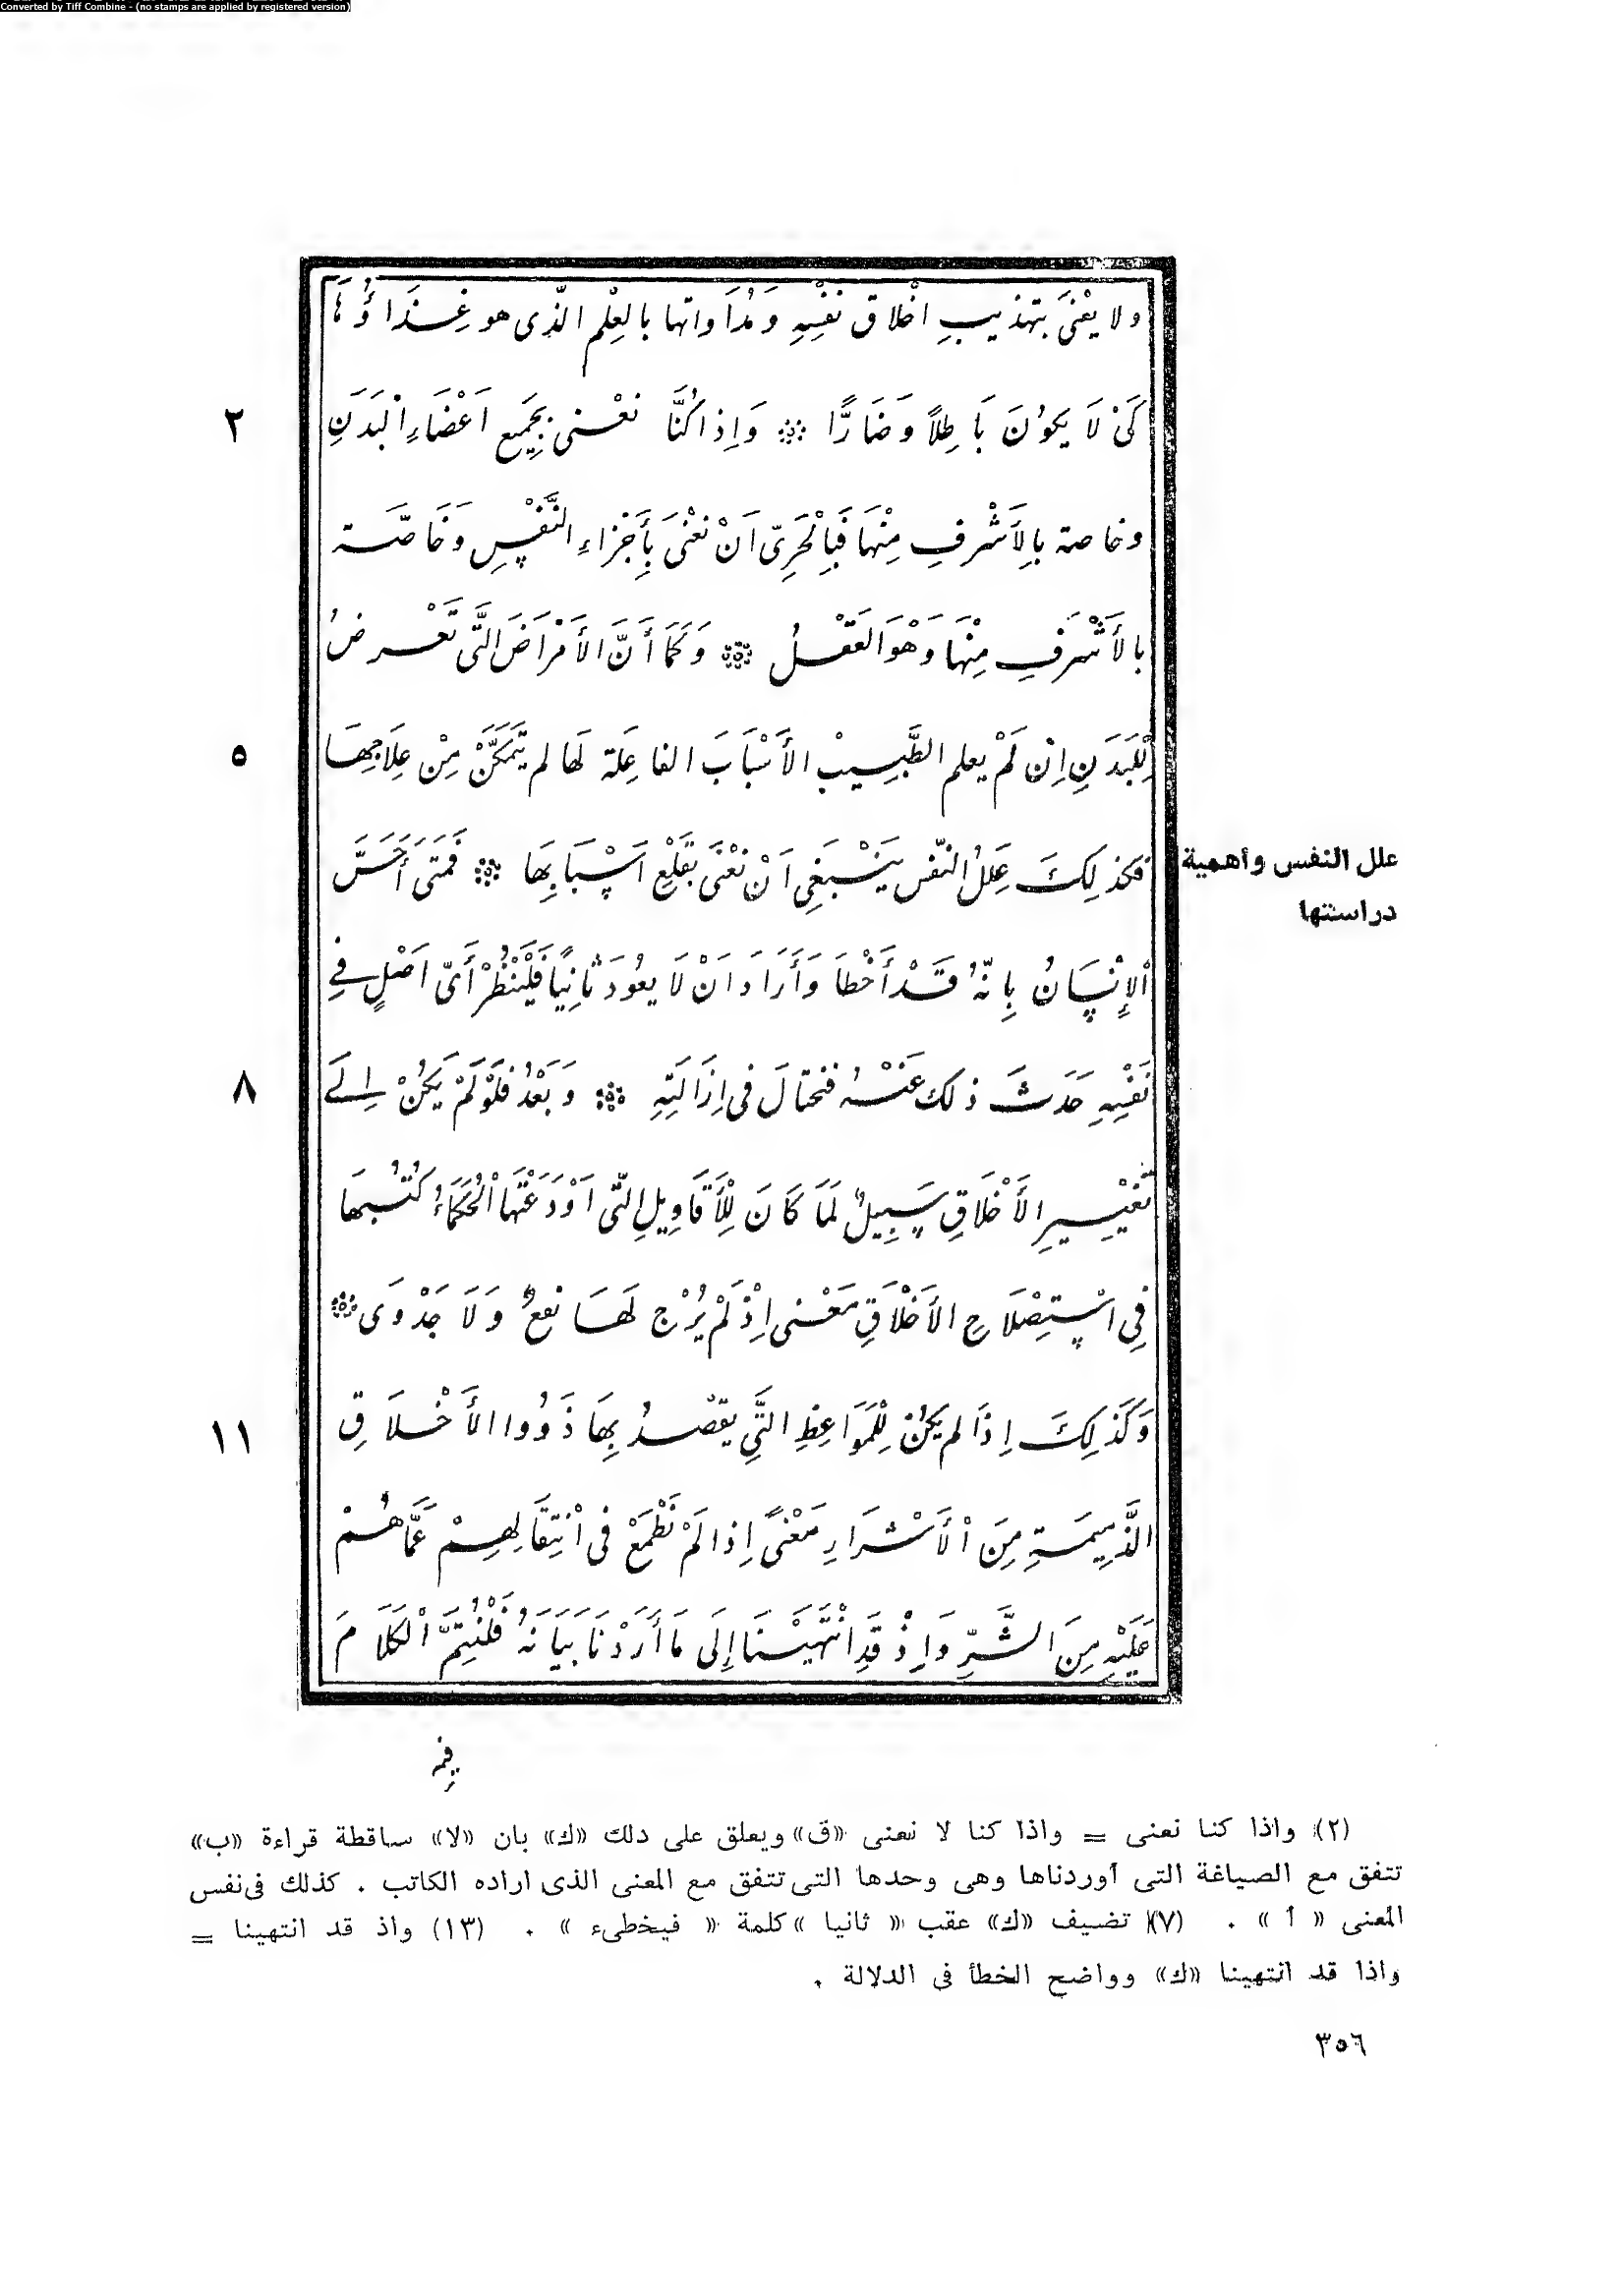 Converted by Tiff Combine - (no stamps are applied by registered version)
ولا يعْنَى بتهذيبِ اخْلاق نفْسِهِ وَمُدَاواتها بالعِلْم الّذى هو غِذَاؤُهَا
٢
كَىْ لَا يَكوُنَ بَاطِلاً وَضَارًّا وَاِذاكُنَّا نعْنى بجَمِيع اَعْضَاءِ الْبَدَنِ
وخاصة بالِأَشْرفِ مِنْهَا فَبِالْحَرِىّ اَنْ نعْنَى بِأَجْزاءِ النَّفْسِ وَخَاصَّة
بالأَشْرَفِ مِنْهَا وَهْوَ العَقْلُ وَكَمَا أَنَّ الأَمْرَاضَ الَّتى تَعْرضُ
٥
لِلْبَدَنِ اِنْ لَمْ يعلم الطَّبِيبْ الأَسْبَابَ الفاعِلة لَها لم يَتَمَكَّنْ مِنْ عِلَاجِهَا
علل النفس وأهمية
دراستها
فكذلِكَ عِلَلُ النّفس يَنْسبَغِى اَنْ نعْنَى بقَلْعِ اَسْبَابِهَا فَمَتَى أَحَسَّ
الإِنْسَانُ بِانّهُ قَدْ أَخْطَا وَأَرَادَ اَنْ لَا يعُودَ ثانِيًا فَلْيَنْظُرْ أَىّ اَصْلٍ فِي
٨
نَفْسِهِ حَدَثَ ذلك عَنْهُ فتحتالَ فى اِزَالَتِهِ وَبَعْدُ فَلَوْ لَمْ يَكُنْ اِلَى
تَغْيِيرِ الأَخْلَاقِ سَبِيلٌ لَمَا كَانَ لِلْأَقَاوِيلِ الّتى اَوْدَعَتْهَا الْحُكَمَاءُ كُتُبهَا
فِى اسْتِصْلَاحِ الأَخْلَاقِ مَعْنى اِذْ لَمْ يُرْج لَهَا نفعٌ وَلَا جَدْوَى
١١
وَكَذلِكَ اِذَا لم يَكُنْ لِلْمَوَاعِظِ الَّتِي يقصُدُ بِهَا ذَوُوا الأَخْلَاقِ
الذَّمِيمَةِ مِنَ الْأَشْرَارِ مَعْنىً اِذا لَمْ نَطْمَعْ فى انْتِقَالِهِمْ عَمَّا هُمْ
عَلَيْهِ مِنَ الشَّرِّ وَاِذْ قَدِ انْتَهَيْنَا إِلَى مَا أَرَدْنَا بَيَانَهُ فَلْنُتِمَّ الْكَلَامَ
(٢) واذا كنا نعنى = واذا كنا لا نعنى «ق» ويعلق على دلك «ك» بان «لا» ساقطة قراءة «ب»
تتفق مع الصياغة التى أوردناها وهى وحدها التى تتفق مع المعنى الذى اراده الكاتب . كذلك فى نفس
المعنى « أ » . (٧) تضيف «ك» عقب « ثانيا » كلمة « فيخطىء » . (١٣) واذ قد انتهينا =
واذا قد انتهينا «ك» وواضح الخطأ فى الدلالة .
٣٥٦